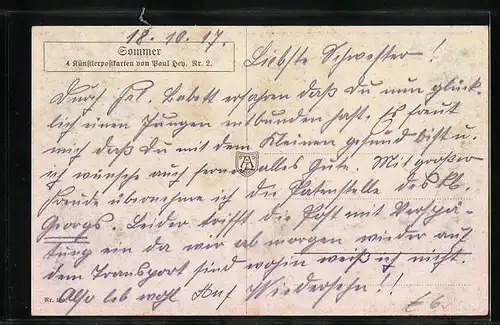 18.10.17.
Sommer
4 Künstlerpostkarten von Paul Hey. Nr. 2.
Liebste Schwester!
Durch Frl. Babett erfahren daß du nun glück-
lich einen Jungen entbunden hast. Es freut
mich daß du mit dem Kleinen gesund bist u.
ich wünsche auch ferner alles Gute. Mit großer
Freude übernehme ich die Patenstelle des kl.
Georgs. Leider trifft die Post mit Verspä-
tung ein da wir ab morgen wieder auf
dem Transport sind wohin weiß ich nicht.
Also leb wohl Auf Wiedersehn!!